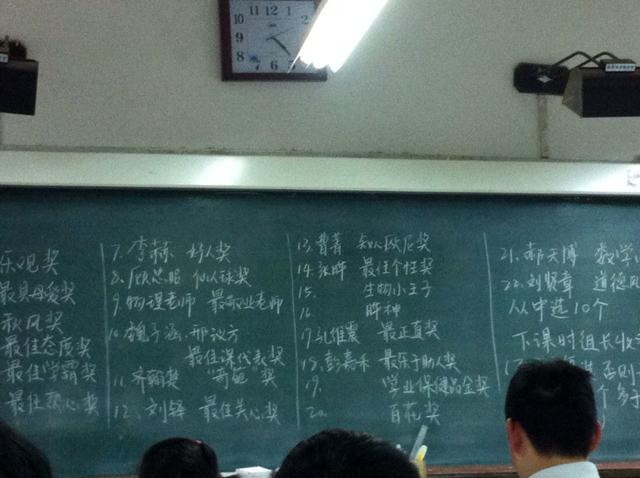 11 12 1
10 2
9
8
7 6
乐观奖
最具母爱奖
秋风奖
最佳态度奖
最佳学霸奖
最佳 心奖
7. 李赫 好人奖
8. 仙人球奖
9. 物理老师 最敬业老师
10. 魏子涵, 邢议方
最佳课代表奖
11. 奖
12. 刘铎 最佳关心奖
13. 曹菁 知心欧尼奖
14. 张晔 最佳个性奖
15. 生物小王子
16 眸神
17. 孔维震 最正直奖
18. 彭嘉禾 最乐于助人奖
19. 学业保健品金奖
20. 百花奖
21. 郝天博 数学
22. 刘贤章 道德风
从中选10个
下课时组长收
否则
个多